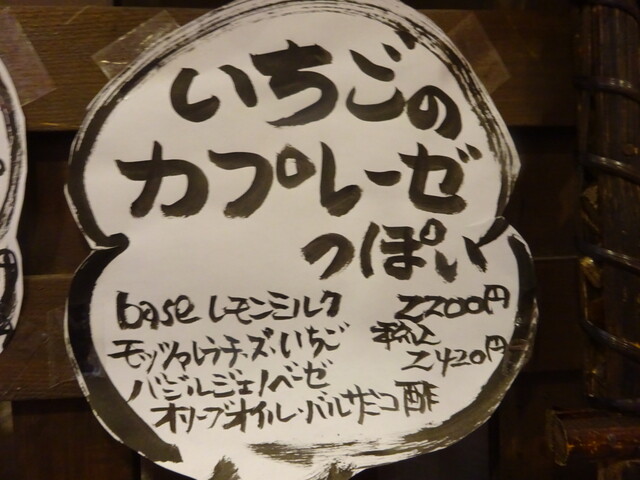 いちごの
カプレーゼ
っぽい
base レモンミルク 2200円
モッツァレラチーズ・いちご 税込 2420円
バジルジェノベーゼ
オリーブオイル・バルサミコ酢